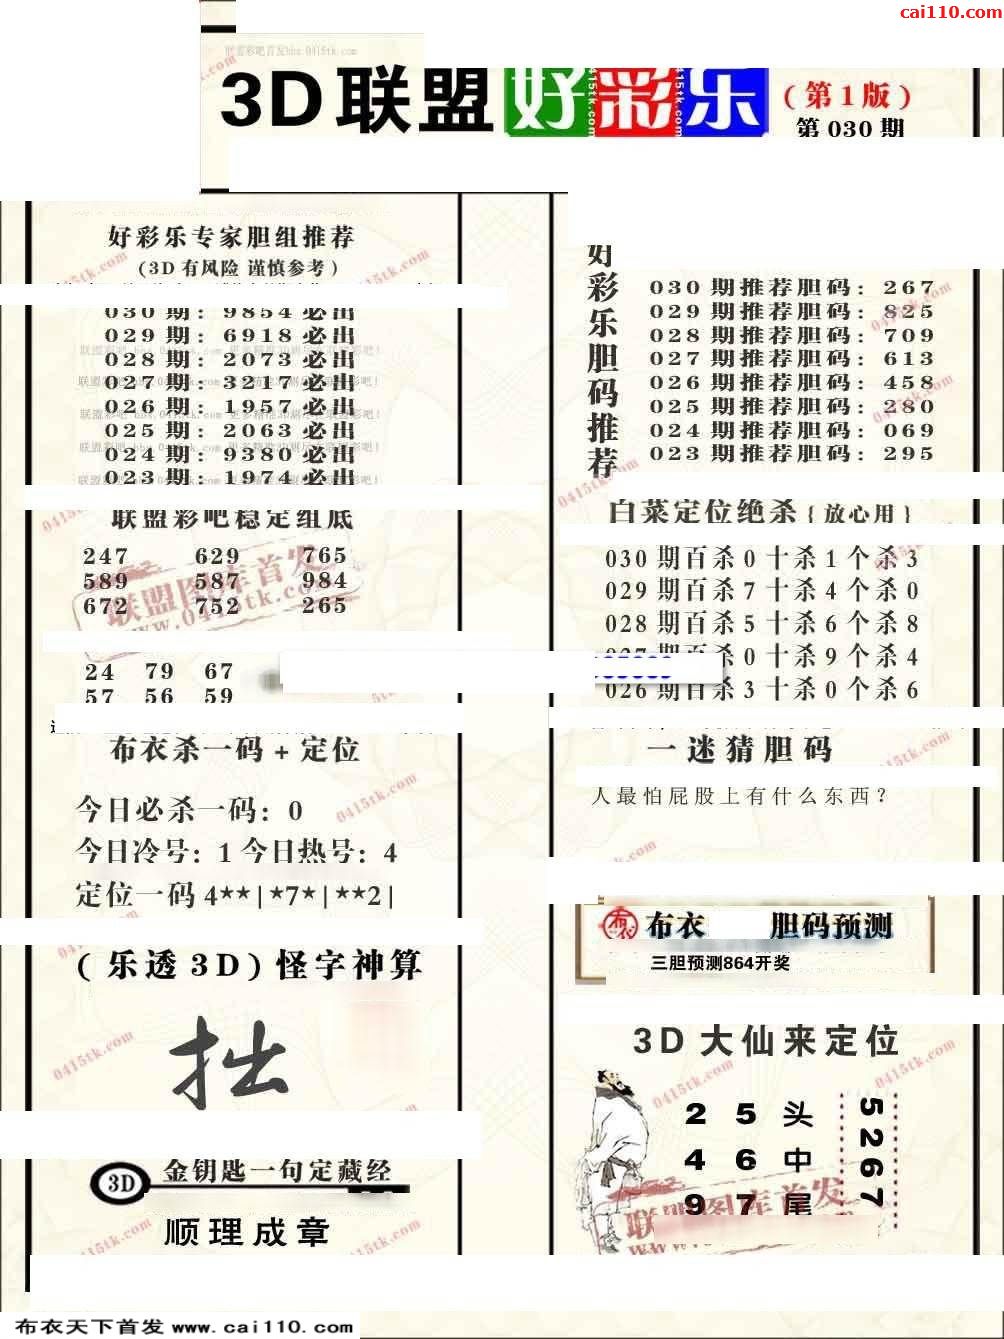 cai110.com
联盟彩吧首发bbs.0415tk.com
3D联盟好彩乐
(第1版)
第030期
好彩乐专家胆组推荐
(3D有风险 谨慎参考)
030期: 9854必出
029期: 6918必出
028期: 2073必出
027期: 3217必出
026期: 1957必出
025期: 2063必出
024期: 9380必出
023期: 1974必出
联盟彩吧稳定组底
247 629 765
589 587 984
672 752 265
24 79 67
57 56 59
布衣杀一码+定位
今日必杀一码: 0
今日冷号: 1 今日热号: 4
定位一码4**|*7*|**2|
(乐透3D)怪字神算
拙
3D 金钥匙一句定藏经
顺理成章
好彩乐胆码推荐
030期推荐胆码: 267
029期推荐胆码: 825
028期推荐胆码: 709
027期推荐胆码: 613
026期推荐胆码: 458
025期推荐胆码: 280
024期推荐胆码: 069
023期推荐胆码: 295
白菜定位绝杀{放心用}
030期百杀0十杀1个杀3
029期百杀7十杀4个杀0
028期百杀5十杀6个杀8
027期百杀0十杀9个杀4
026期百杀3十杀0个杀6
一迷猜胆码
人最怕屁股上有什么东西?
布衣 布衣 胆码预测
三胆预测864开奖
3D大仙来定位
2 5 头
4 6 中
9 7 尾
5267
联盟图库首发
www.0415tk.com
0415tk.com
布衣天下首发 www.cai110.com